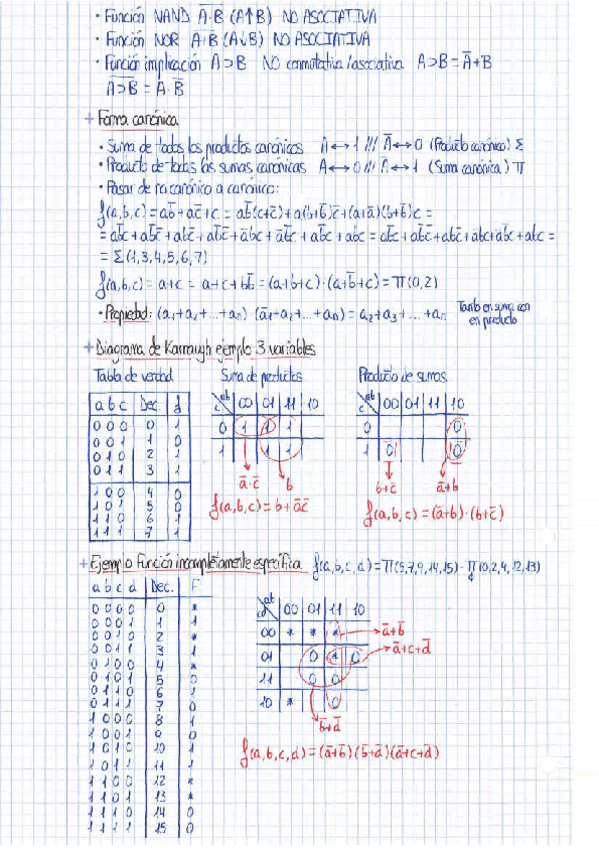 • Función NAND \overline{A·B} (A↑B) NO ASOCIATIVA
• Función NOR \overline{A+B} (A↓B) NO ASOCIATIVA
• Función implicación A⊃B NO conmutativa/asociativa A⊃B = Ā+B
\overline{A⊃B} = A·B̄
+ Forma canónica
• Suma de todos los productos canónicos A↔1 /// Ā↔0 (Producto canónico) Σ
• Producto de todas las sumas canónicas A↔0 /// Ā↔1 (Suma canónica) Π
• Pasar de no canónico a canónico:
f(a,b,c) = ab̄ + ac̄ + c = ab̄(c+c̄) + a(b+b̄)c̄ + (a+ā)(b+b̄)c =
= Σ(1,3,4,5,6,7)
f(a,b,c) = a+c = a+c+bb̄ = (a+b+c)·(a+b̄+c) = Π(0,2)
• Propiedad: (a₁+a₂+...+aₙ)·(ā₁+a₂+...+aₙ) = a₂+a₃+...+aₙ
en producto
+ Diagrama de Karnaugh ejemplo 3 variables
Tabla de verdad Suma de productos Producto de sumas
a b c Dec. f
0 0 0 0 1
0 0 1 1 0
0 1 0 2 1
0 1 1 3 1
1 0 0 4 0
1 0 1 5 0
1 1 0 6 1
1 1 1 7 1
ab
c 00 01 11 10
0 1 1 1
1 1 1
ā·c̄ b
f(a,b,c) = b+āc̄
ab
c 00 01 11 10
0 0
1 0 0
b+c̄ ā+b
f(a,b,c) = (ā+b)·(b+c̄)
+ Ejemplo función incompletamente específica f(a,b,c,d) = Π(5,7,9,14,15)·Π(0,2,4,12,13)
a b c d Dec. F
0 0 0 0 0 *
0 0 0 1 1 1
0 0 1 0 2 *
0 0 1 1 3 1
0 1 0 0 4 *
0 1 0 1 5 0
0 1 1 0 6 1
0 1 1 1 7 0
1 0 0 0 8 1
1 0 0 1 9 0
1 0 1 0 10 1
1 0 1 1 11 1
1 1 0 0 12 *
1 1 0 1 13 *
1 1 1 0 14 0
1 1 1 1 15 0
ab
cd 00 01 11 10
00 * * *
01 0 * 0
11 0 0
10 * 0
ā+b̄
ā+c+d̄
b̄+d̄
f(a,b,c,d) = (ā+b̄)(b̄+d̄)(ā+c+d̄)